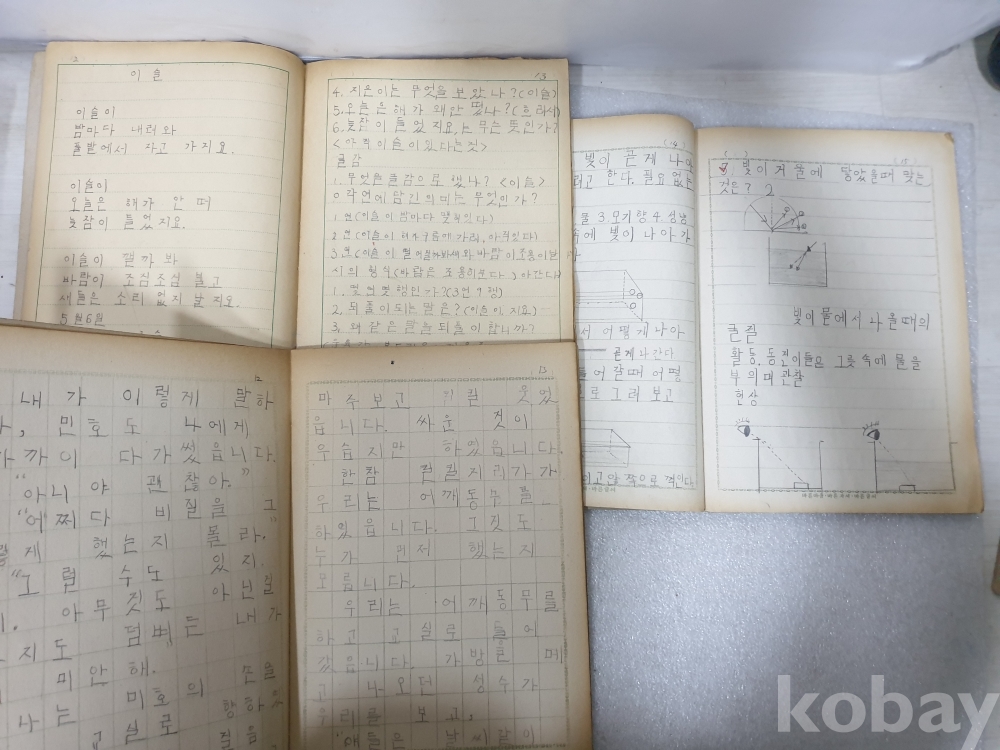 12
이슬
이슬이
밤마다 내려와
풀밭에서 자고 가지요.
이슬이
오늘은 해가 안 떠
늦잠이 들었지요.
이슬이 깰까 봐
바람이 조심조심 불고
새들은 소리 없지 날지요.
5월6일
13
4. 지은이는 무엇을 보았나?(이슬)
5. 오늘은 해가 왜 안 떴나?(흐려서)
6. 늦잠이 들었지요,는 무슨 뜻인가?
<아직 이슬이 있다는것>
글감
1. 무엇을 글감으로 했나? <이슬>
각연에 담긴 의미는 무엇인가?
1연(이슬이 밤마다 맺혀있다)
2연(이슬이 해가 구름에 가려, 아직있다)
3.연(이슬이 떨어질까봐 바람이 조용히 분다
시의 형식(바람은 조용히 분다)
1. 몇연 몇 행인가?(3연 9행)
2. 되풀이되는 말은?(이슬이, 지요)
3. 왜 같은 말을 되풀이 합니까?
(14)
빛이 곧게 나아
라고 한다. 필요없는
물 3. 모기향 4. 성냥
속에 빛이 나아가
서 어떻게 나아
곧게 나간다
들어갈때 어떻
으로 그려 보고
(15)
7 빛이 거울에 닿았을때 맞는
것은? 2
빛이 물에서 나올때의
굴절
활동. 동진이들은 그릇 속에 물을
부의며 관찰
현상
12
내가 이렇게 말하
, 민호도 나에게
까이 다가 썼읍니다.
"아니야 괜찮아."
"어쩌다 비질을 그
렇게 했는지 몰라."
"그럴 수도 있지.
아무것도 아닌일
지도 덤벼는 내가
미안해."
나는 미호의 손을
13
마주보고 웃었
읍니다. 싸운 것이
우습지만 하였읍니다.
한참 낄낄거리다가
우리는 어깨동무를
하였읍니다. 그것도
누가 먼저 했는지
모릅니다.
우리는 어깨동무를
하고 교실로 들어
갔읍니다. 가방을 메
고 나오던 성수가
우리를 보고,
"애들은 날씨같이
kobay